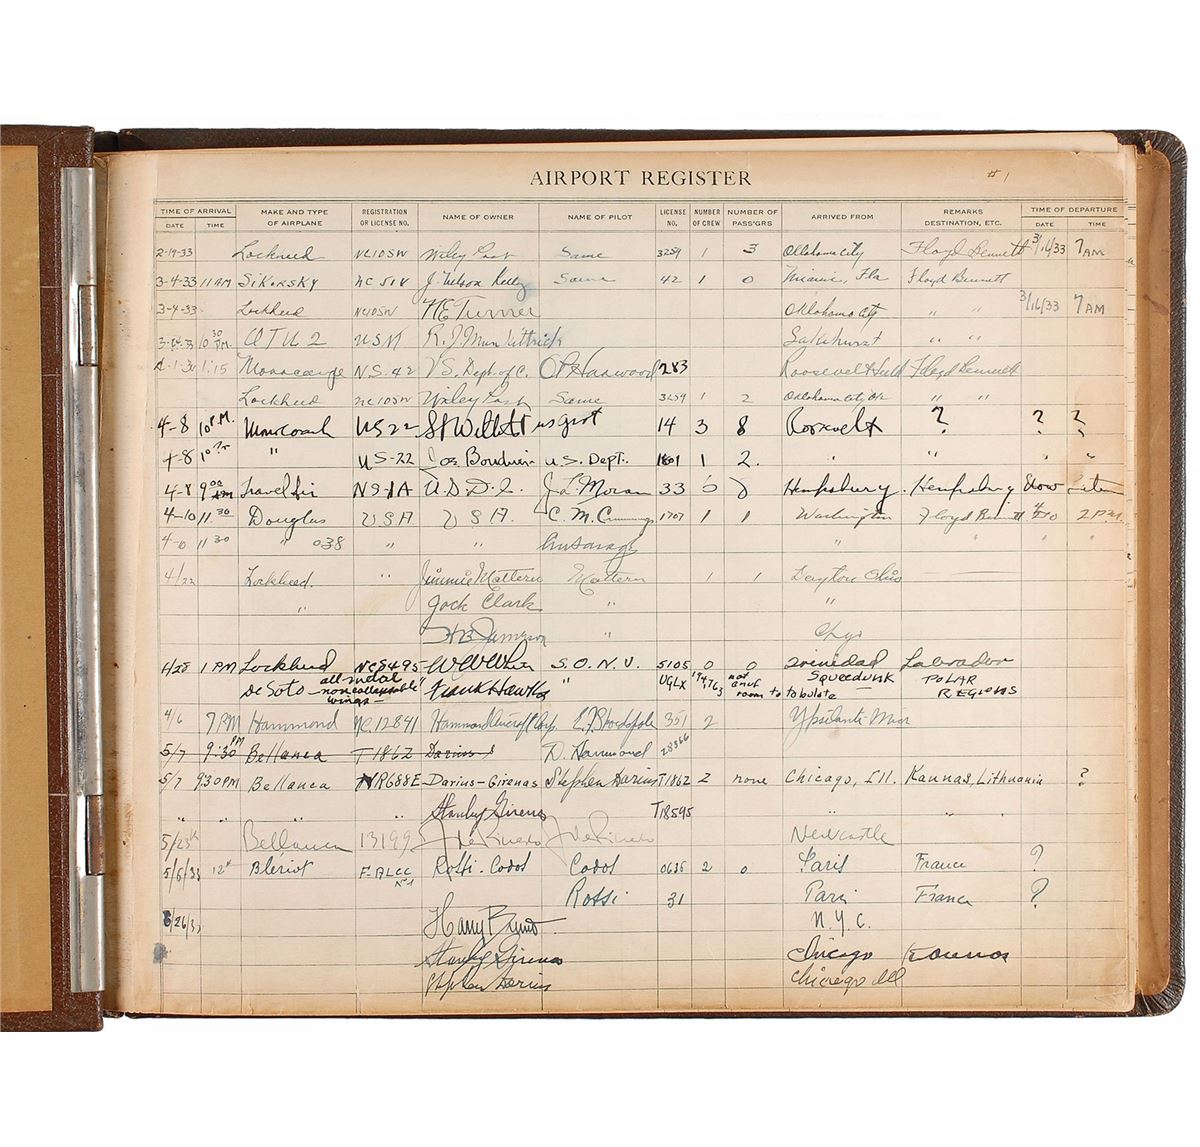 AIRPORT REGISTER # 1
TIME OF ARRIVAL MAKE AND TYPE OF AIRPLANE REGISTRATION OR LICENSE NO. NAME OF OWNER NAME OF PILOT LICENSE NO. NUMBER OF CREW NUMBER OF PASS'GRS ARRIVED FROM REMARKS DESTINATION, ETC. TIME OF DEPARTURE
DATE TIME DATE TIME
2-19-33 Lockheed NC105W Wiley Post Same 3259 1 3 Oklahoma City Floyd Bennett 3/16/33 7 AM
3-4-33 11 AM Sikorsky NC 51V J. Nelson Kelly Same 42 1 0 Miami, Fla Floyd Bennett
3-4-33 Lockheed NC105W Oklahoma City " " 3/16/33 7 AM
10 30 PM. USN R. J. Lakehurst " "
1:15 N.S. 42 U.S. Dept. of C. Harwood 283 Roosevelt Field Floyd Bennett
Lockheed NC105W Wiley Post Same 3259 1 2 Oklahoma City Ok " "
4-8 10 P.M. Monocoach US22 14 3 8 Roosevelt ? ? ?
4-8 10 " US-22 Boudwin U.S. Dept. 1801 1 2. " " " "
4-8 9 00 AM Travel Air NS-1A J. L. Moran 33
4-10 11. 30 Douglas USA USA. C. M. Cummings 1707 1 1 Washington Floyd Bennett 2 P.M.
11 30 " 038 " " " " " "
4/22 Lockheed. " Jimmie Mattern Mattern 1 1 Dayton Ohio
" Jack Clark " "
"
4/25 1 PM Lockheed NC5495 S.O.N.U. 5105 0 0 Trinidad Labrador
DeSoto all-metal non collapsable wings— " Frank Hawks UGLX 194,763 not enuf room to tabulate Squeedunk POLAR REGIONS
4/6 7 PM Hammond NC.12841 Hammond Aircraft Corp. 351 2 Ypsilanti Mich
5/7 9:30 PM Bellanca T1862 Darius D. Hammond 28366
5/7 9:30 PM Bellanca NR688E Darius-Girenas Stephen Darius T1862 2 none Chicago, Ill. Kaunas, Lithuania ?
" " " " Stanley Girenas T18595 " "
5/23 Bellanca 13199 Newcastle
5/6/33 Bleriot F-ALCC Nº1 Rossi-Codos Codos 0636 2 0 Paris France ?
Rossi 31 Paris France ?
6/26/33 Harry N.Y.C.
Stanley Girenas Chicago Kaunas
Stephen Darius Chicago Ill